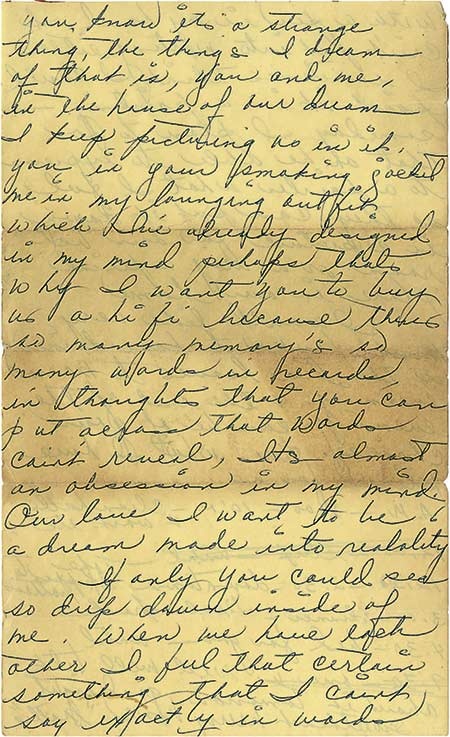 you know its a strange
thing, the things I dream
of that is, you and me,
in the house of our dream
I keep picturing us in it,
you in your smoking jacket
me in my lounging outfit
which I've already designed
in my mind perhaps thats
why I want you to buy
us a hi fi because theres
so many memory's so
many words in records,
in thoughts that you can
put across that words
can't reveil, Its almost
an obsession in my mind.
Our love I want to be
a dream made into realality
If only you could see
so deep down inside of
me. When we have each
other I ful that certain
something that I can't
say exactly in words